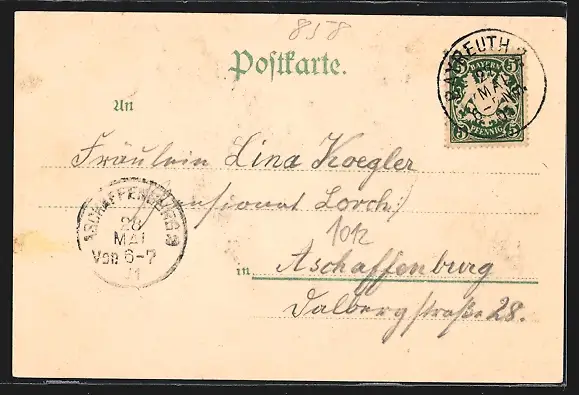 858
Postkarte.
BAYREUTH 2
MAI
BAYERN
5 5
5 PFENNIG 5
An
Fräulein Lina Koegler
Pensionat Lorch:)
1012
ASCHAFFENBURG
28
MAI
Von 6-7
in Aschaffenburg
Dalbergstraße 28.